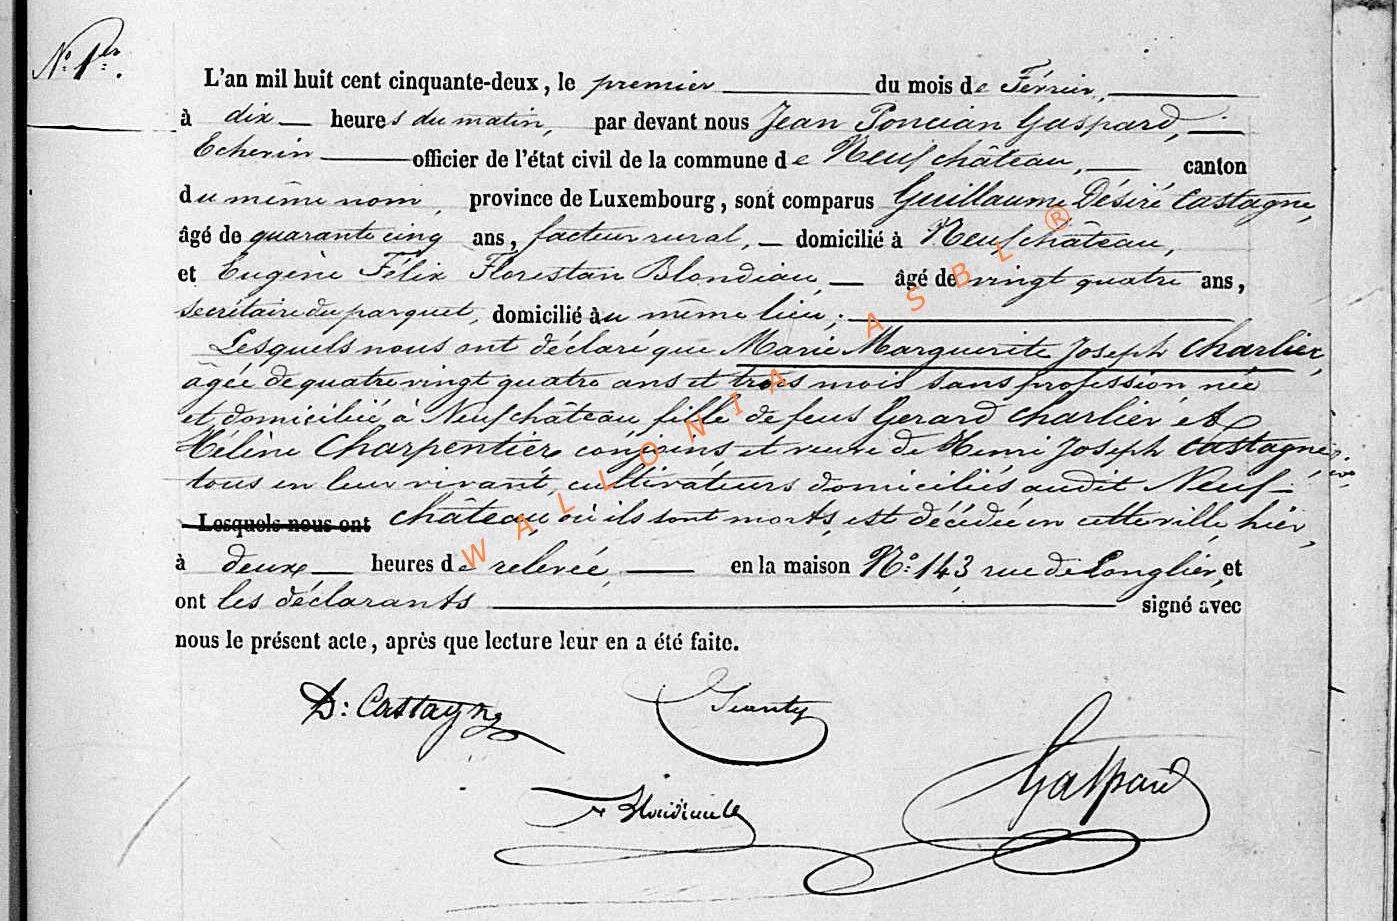 N° 1er.
L'an mil huit cent cinquante-deux, le premier du mois de Février,
à dix heures du matin, par devant nous Jean Poncian Gaspard,
Echevin officier de l'état civil de la commune de Neufchâteau, canton
du même nom, province de Luxembourg, sont comparus Guillaume Désiré Castagne,
âgé de quarante cinq ans, facteur rural, domicilié à Neufchâteau,
et Eugène Félix Florestan Blondiau, âgé de vingt quatre ans,
secrétaire du parquet, domicilié au même lieu;
Lesquels nous ont déclaré que Marie Marguerite Joseph Charlier,
âgée de quatre vingt quatre ans et trois mois sans profession née
et domiciliée à Neufchâteau fille de feus Gerard Charlier et
Hélène Charpentier conjoints et veuve de Henri Joseph Castagne
tous en leur vivant cultivateurs domiciliés audit Neuf-
Lesquels nous ont château, où ils sont morts, est décédée en cette ville, hier,
à deux heures de relevée, en la maison N° 143 rue de Longlier, et
ont les déclarants signé avec
nous le présent acte, après que lecture leur en a été faite.
D: Castagne
Gaspard
WALLONIA ASBL ®